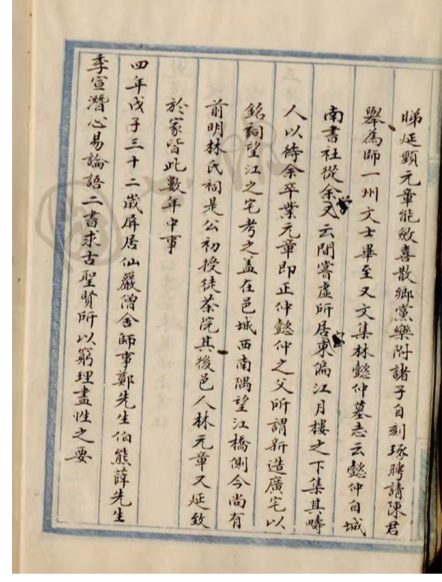 睇延頸元章能斂喜散鄉黨樂附諸子自刻琢聘請陳君
舉為師一州文士畢至又文集林懿仲墓志云懿仲自城
南書社從余學又云間嘗虛所居室東偏江月樓之下集其疇
人以待余卒業元章即正仲懿仲之父所謂新造廣宅以
銘詞望江之宅考之盖在邑城西南隅望江橋側今尚有
前明林氏祠是公初授徒茶院其後邑人林元章又延致
於家皆此數年中事
四年戊子三十二歲屏居仙巖僧舍師事鄭先生伯熊薛先生
季宣潛心易論語二書求古聖賢所以窮理盡性之要